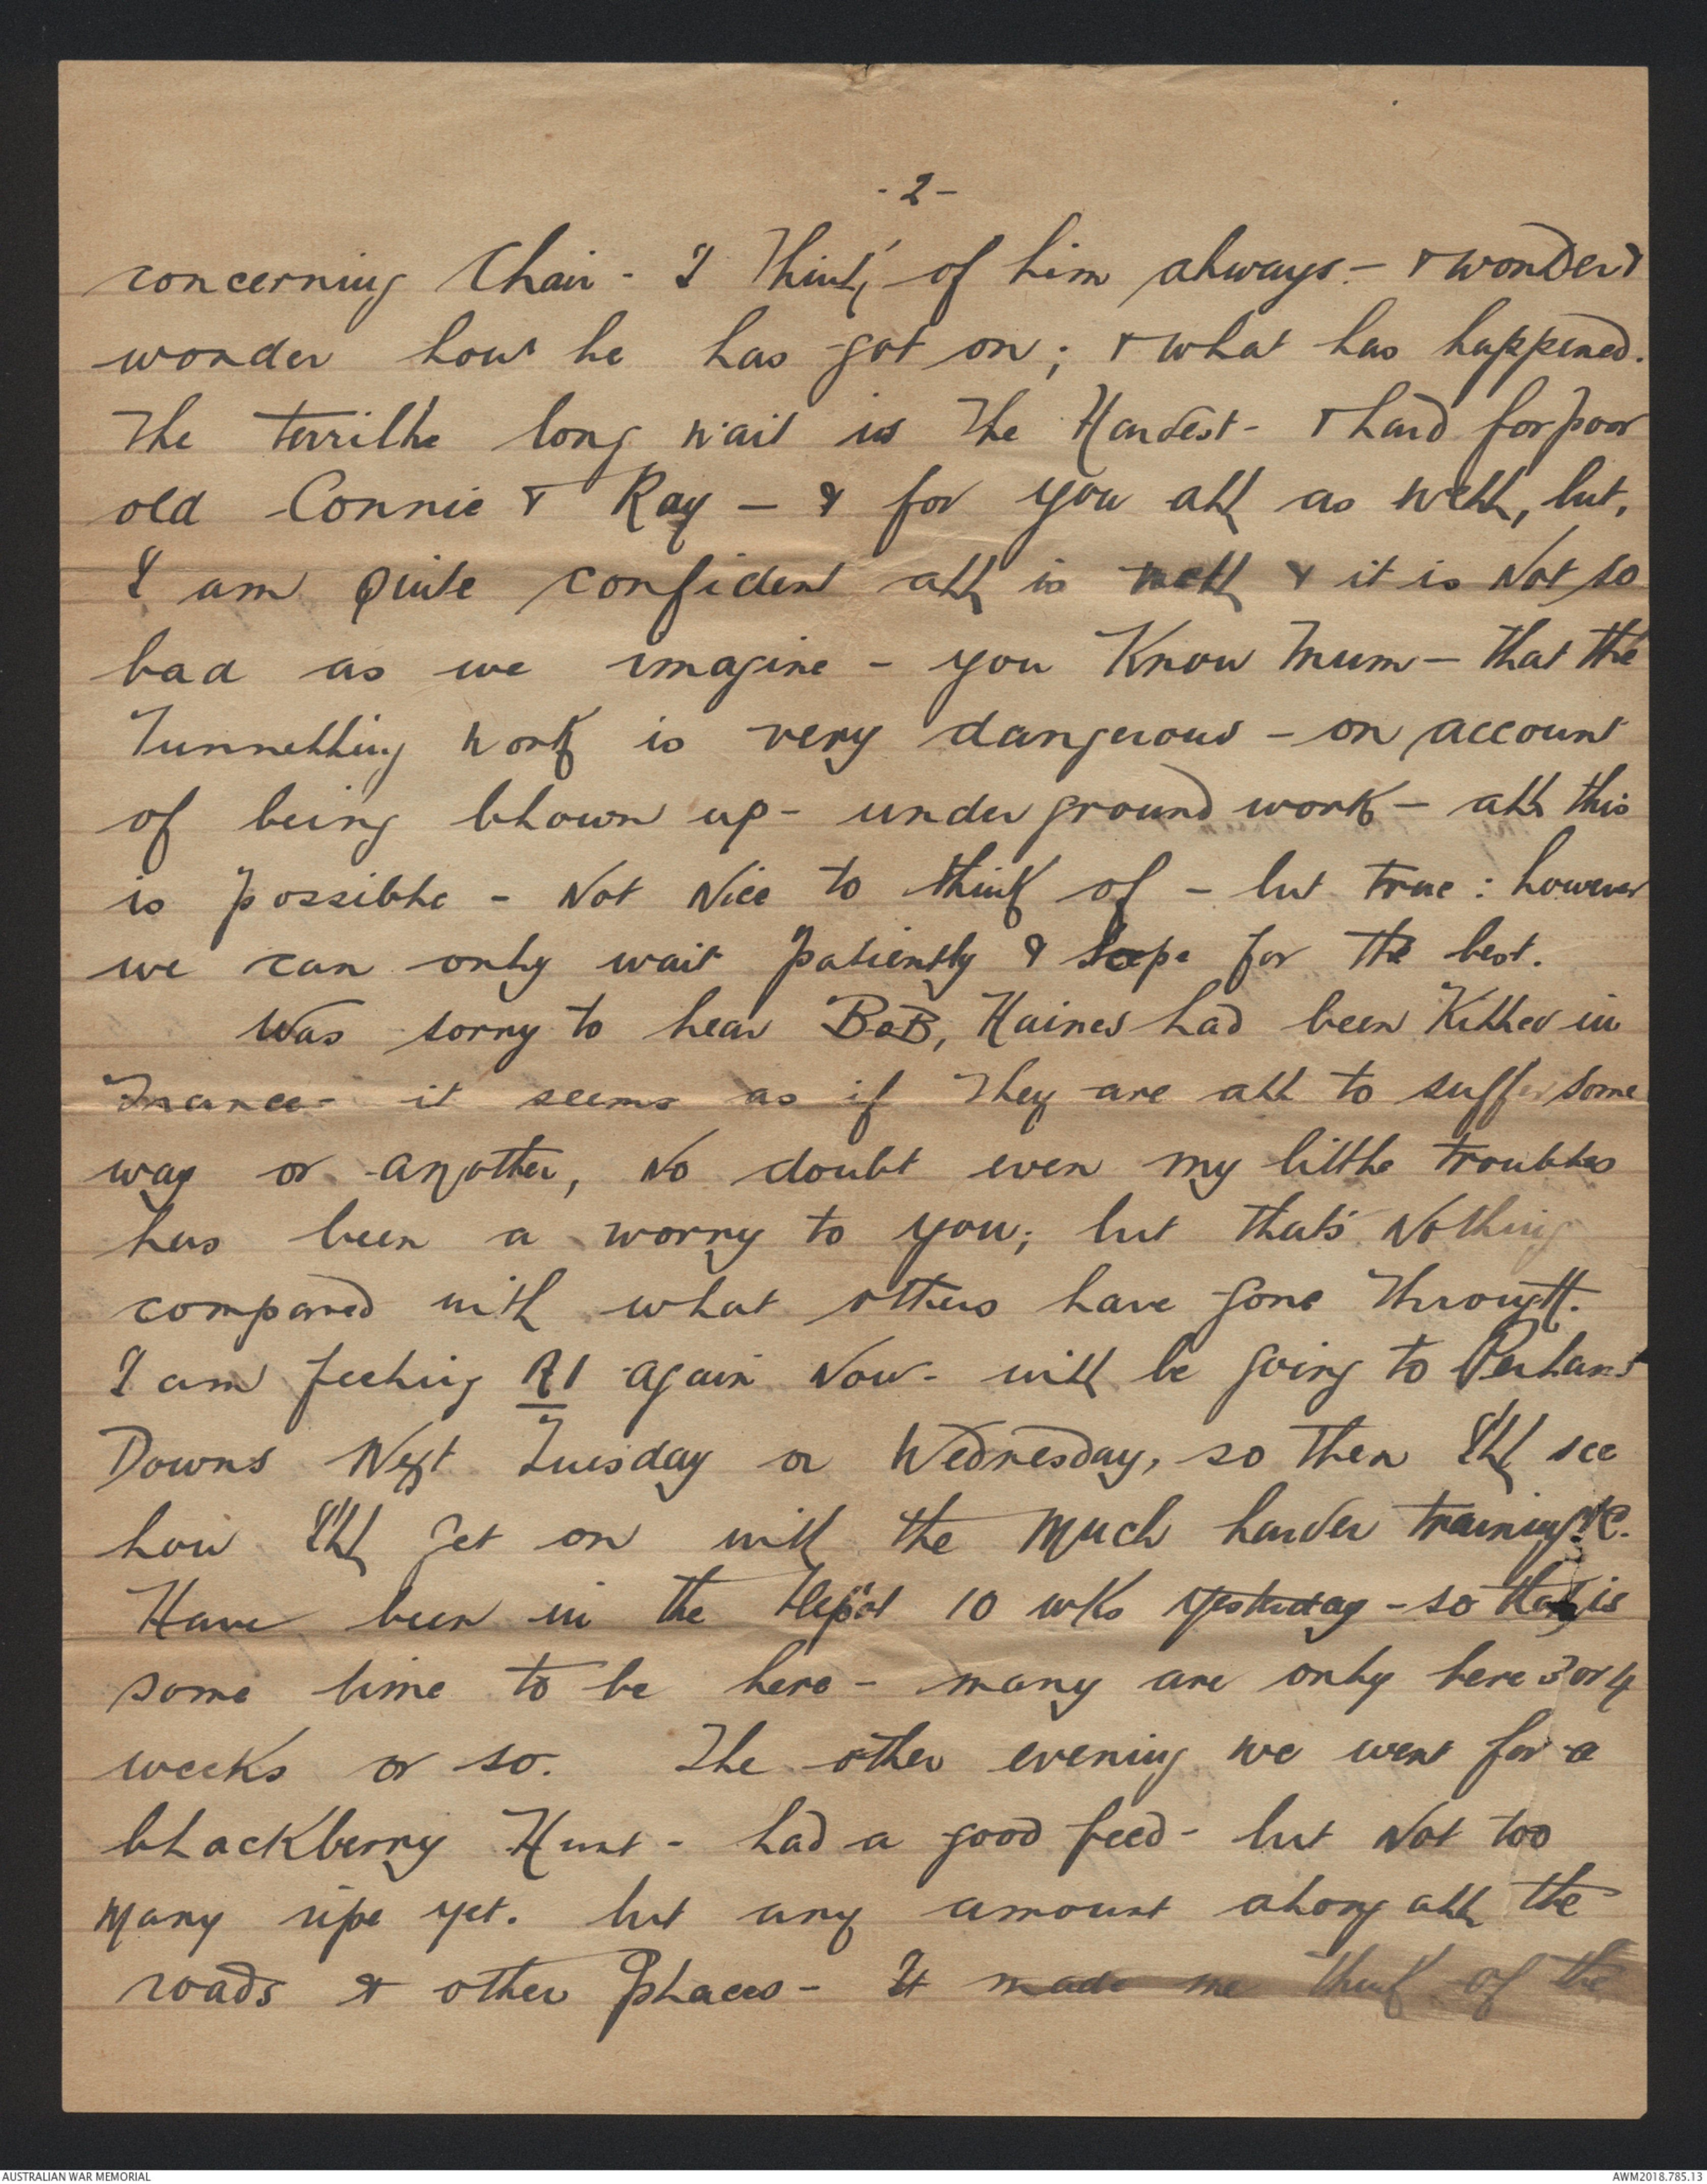 - 2 -
concerning Chair - I think of him always - & wonder &
wonder how he has got on; & what has happened.
The terrible long wait is the Hardest - & hard for poor
old Connie & Ray - & for you all as well, but,
I am quite confident all is well & it is Not so
bad as we imagine - you Know Mum - that the
Tunnelling work is very dangerous - on account
of being blown up - under ground work - all this
is possible - Not Nice to think of - but true: however
we can only wait patiently & hope for the best.
Was sorry to hear BoB, Haines had been Killed in
France - it seems as if they are all to suffer some
way or another, No doubt even my little troubles
has been a worry to you; but that's Nothing
compared with what others have gone through.
I am feeling A1 again Now - will be going to Perham's
Downs Next Tuesday or Wednesday, so then I'll see
how I'll get on with the Much harder training &c.
Have been in the Depôt 10 wks yesterday - so that is
some time to be here - many are only here 3 or 4
weeks or so. The other evening we went for a
blackberry Hunt - had a good feed - but Not too
Many ripe yet. but any amount along all the
roads & other places - It made me think of the
AUSTRALIAN WAR MEMORIAL
AWM2018.785.13